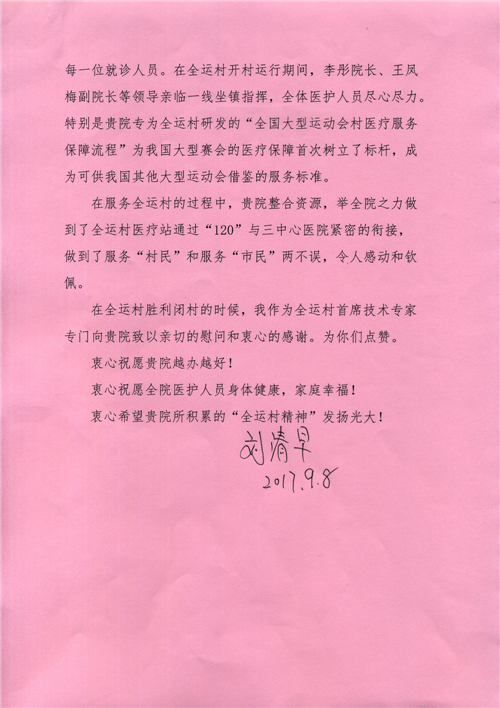 每一位就诊人员。在全运村开村运行期间，李彤院长、王凤
梅副院长等领导亲临一线坐镇指挥，全体医护人员尽心尽力。
特别是贵院专为全运村研发的“全国大型运动会村医疗服务
保障流程”为我国大型赛会的医疗保障首次树立了标杆，成
为可供我国其他大型运动会借鉴的服务标准。
在服务全运村的过程中，贵院整合资源，举全院之力做
到了全运村医疗站通过“120”与三中心医院紧密的衔接，
做到了服务“村民”和服务“市民”两不误，令人感动和钦
佩。
在全运村胜利闭村的时候，我作为全运村首席技术专家
专门向贵院致以亲切的慰问和衷心的感谢。为你们点赞。
衷心祝愿贵院越办越好！
衷心祝愿全院医护人员身体健康，家庭幸福！
衷心希望贵院所积累的“全运村精神”发扬光大！
刘清早
2017.9.8